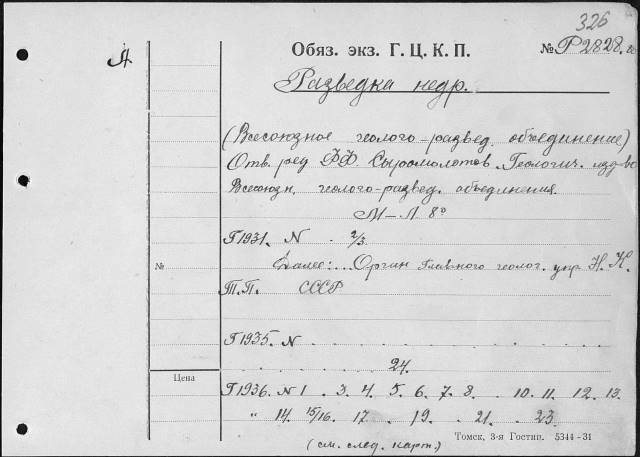 326
А
Обяз. экз. Г. Ц. К. П. №Р2828.
Разведка недр.
(Всесоюзное геолого-развед. объединение)
Отв. ред Ф.Ф. Сыромолотов. Геологич. изд-во
Всесоюзн. геолого-развед. объединения.
М-Л 8°
Г1931. N . 2/3
Далее:... Орган Главного геолог. упр. Н. К.
Т. П. СССР
№
Г1935. N . . . . . . . . . . . .
. . . . . . 24.
Цена
Г1936. N 1 . 3. 4. 5. 6. 7. 8. . 10. 11. 12. 13.
" 14. 15/16. 17. . 19. . 21. . 23.
(см. след. карт.)
Томск, 3-я Гостип. 5344-31